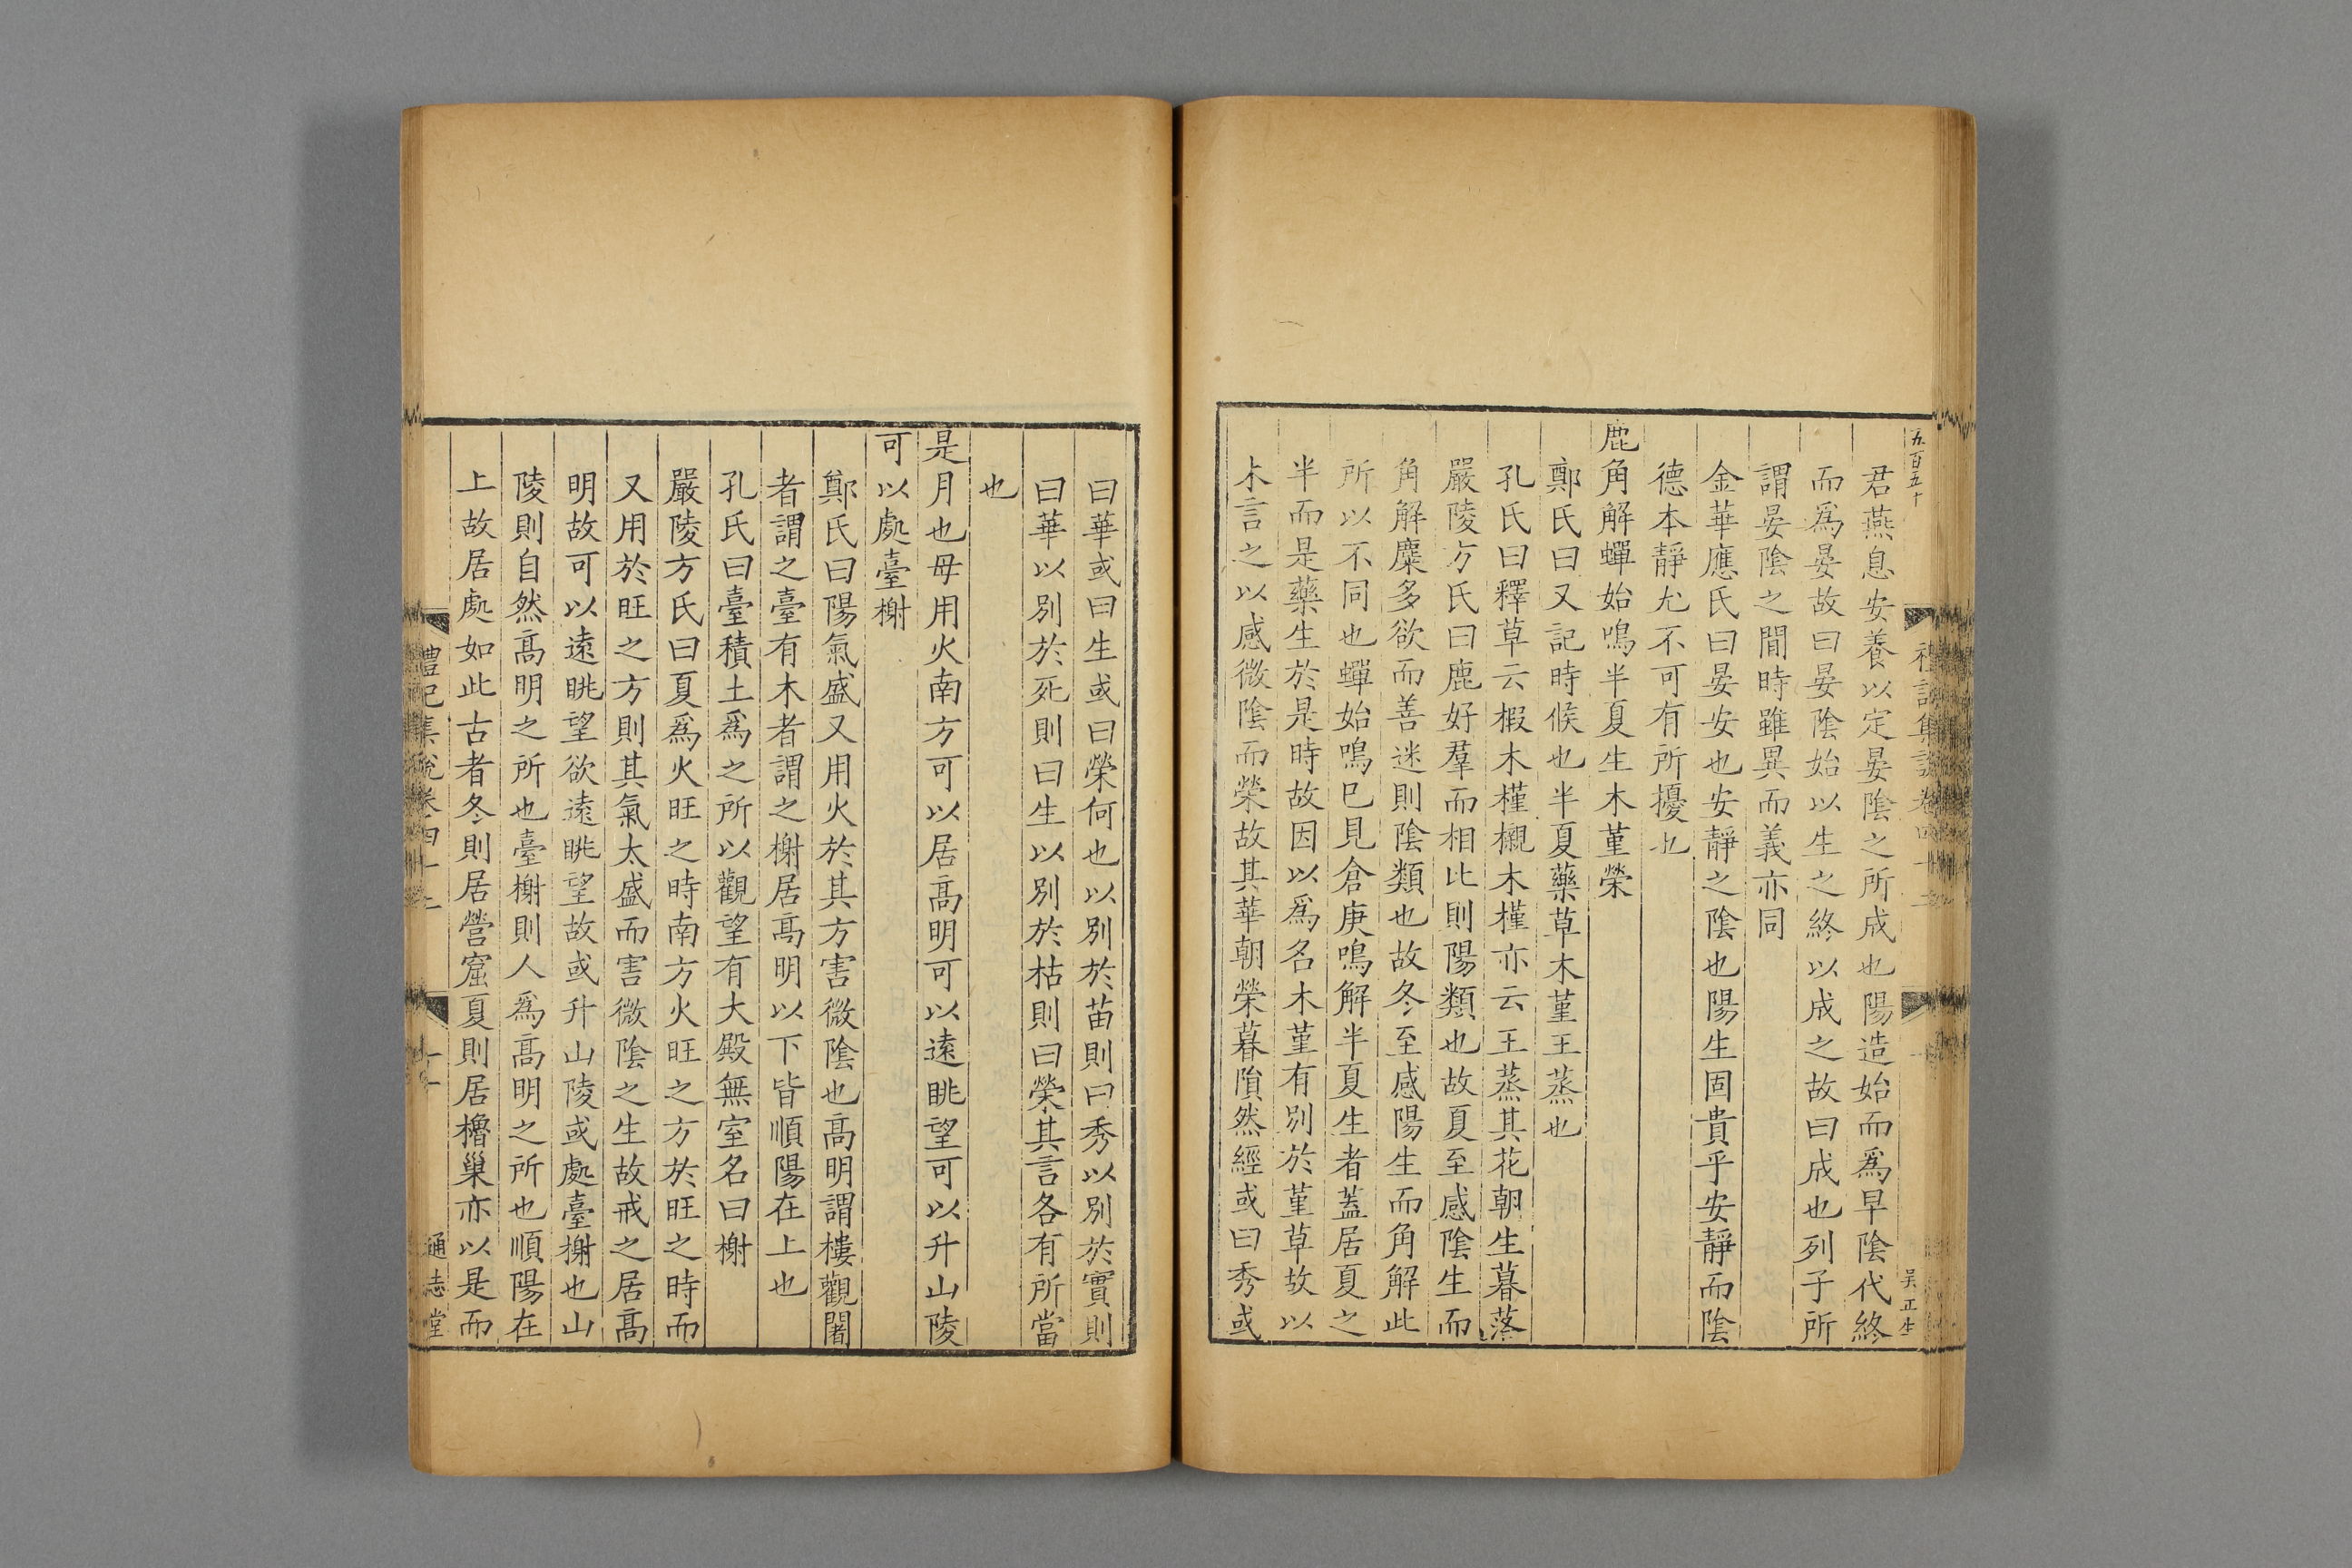 五百五十
君燕息安養以定晏陰之所成也陽造始而爲早陰代終
而爲晏故曰晏陰始以生之終以成之故曰成也列子所
謂晏陰之閒時雖異而義亦同
金華應氏曰晏安也安靜之陰也陽生固貴乎安靜而陰
德本靜尤不可有所擾也
鹿角解蟬始鳴半夏生木堇榮
鄭氏曰又記時候也半夏藥草木堇王蒸也
孔氏曰釋草云椵木槿櫬木槿亦云王蒸其花朝生暮落
嚴陵方氏曰鹿好羣而相比則陽類也故夏至感陰生而
角解麋多欲而善迷則陰類也故冬至感陽生而角解此
所以不同也蟬始鳴巳見倉庚鳴解半夏生者蓋居夏之
半而是藥生於是時故因以爲名木堇有別於堇草故以
木言之以感微陰而榮故其華朝榮暮隕然經或曰秀或
吳正生
曰華或曰生或曰榮何也以別於苗則曰秀以別於實則
曰華以別於死則曰生以別於枯則曰榮其言各有所當
也
是月也毋用火南方可以居高明可以遠眺望可以升山陵
可以處臺榭
鄭氏曰陽氣盛又用火於其方害微陰也高明謂樓觀闍
者謂之臺有木者謂之榭居高明以下皆順陽在上也
孔氏曰臺積土爲之所以觀望有大殿無室名曰榭
嚴陵方氏曰夏爲火旺之時南方火旺之方於旺之時而
又用於旺之方則其氣太盛而害微陰之生故戒之居高
明故可以遠眺望欲遠眺望故或升山陵或處臺榭也山
陵則自然高明之所也臺榭則人爲高明之所也順陽在
上故居處如此古者冬則居營窟夏則居櫓巢亦以是而
禮記集說卷四十二
十一
通志堂